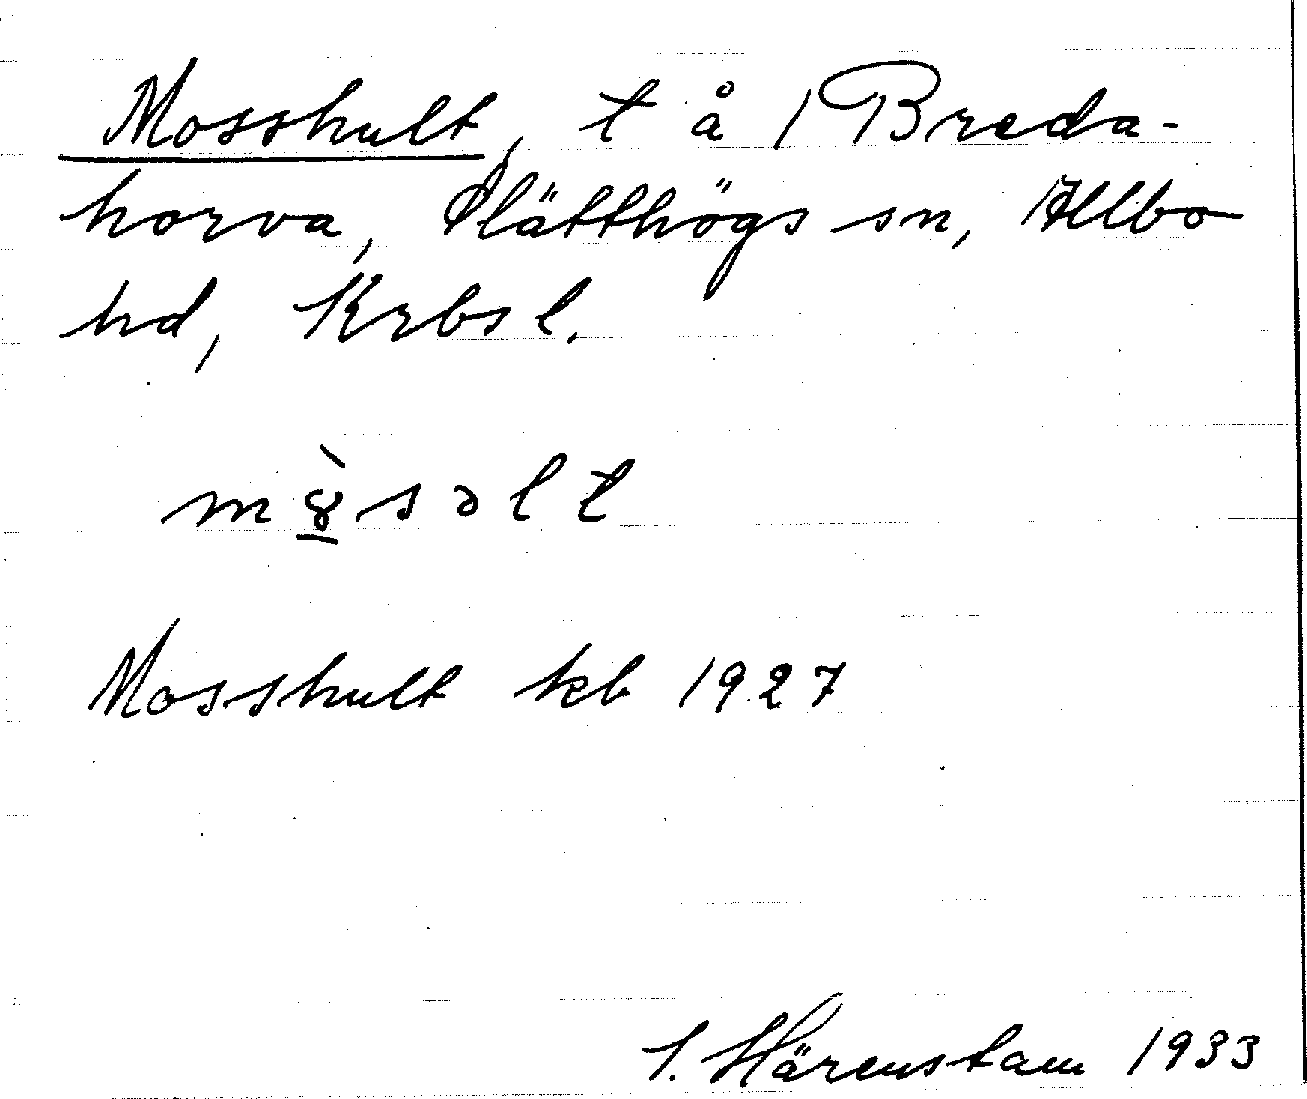 Mosshult, t å Breda-
horva, Slätthögs sn, Allbo
hd, Krbsl.
mø̀səlt
Mosshult kb 1927
S. Härenstam 1933